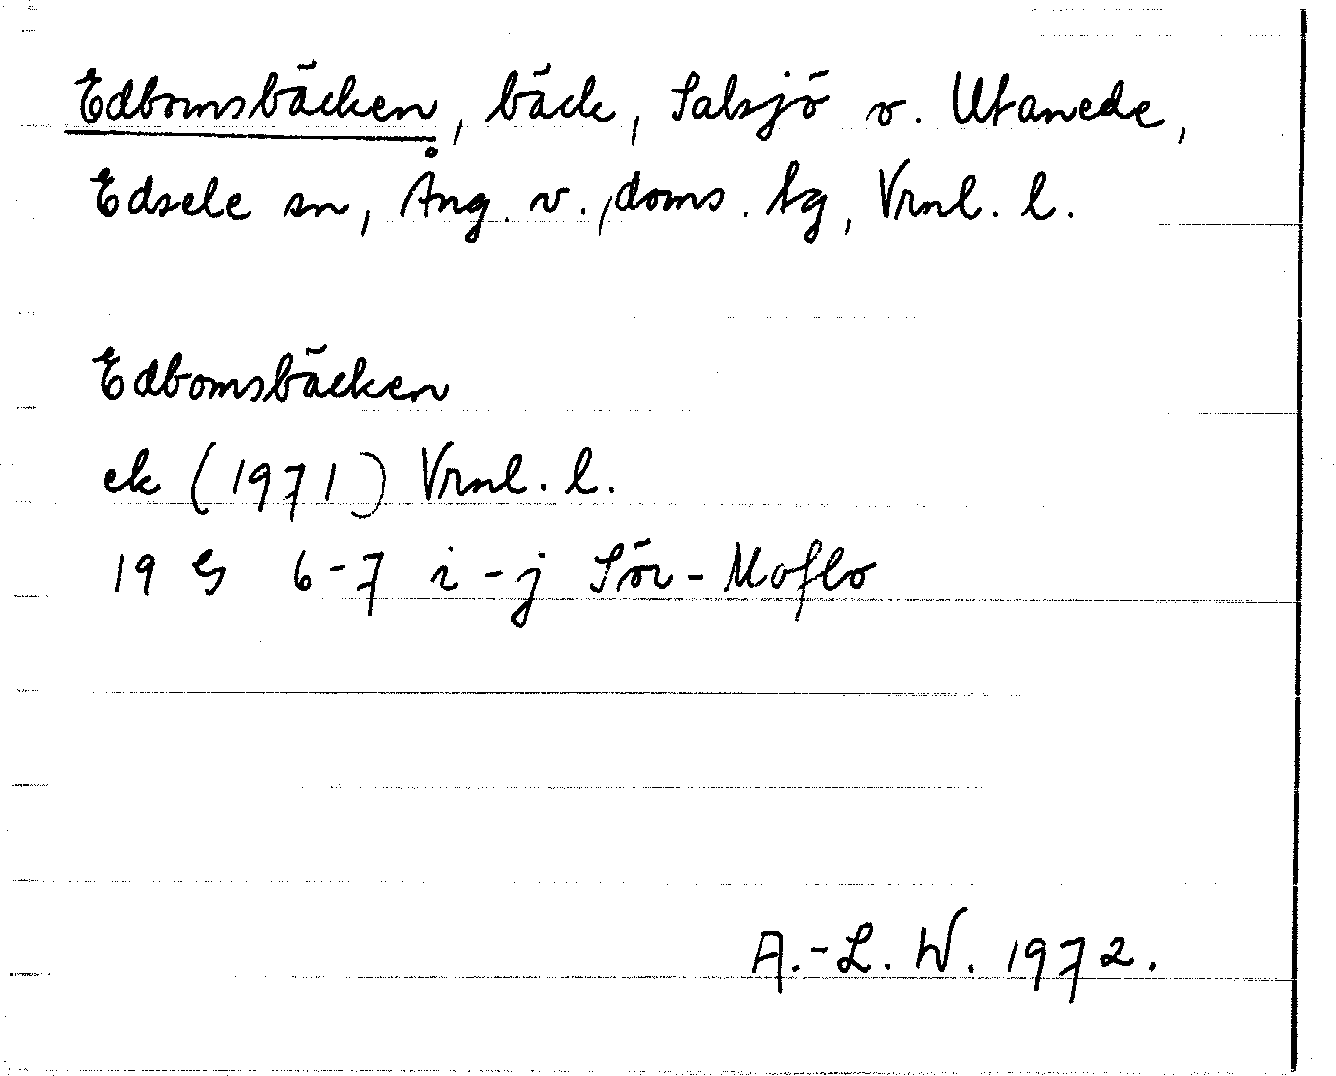 Edbomsbäcken, bäck, Salsjö o. Utanede,
Edsele sn, Ång. v. doms. tg, Vrnl. l.
Edbomsbäcken
ek (1971) Vrnl. l.
19 G 6-7 i-j Sör-Moflo
A.-L. W. 1972.